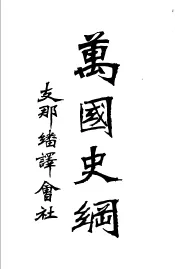 萬國史綱
支那繙譯會社